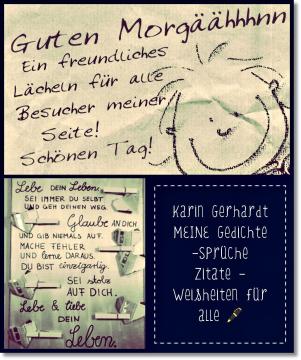 Guten Morgäähhhnn
Ein freundliches
Lächeln für alle
Besucher meiner
Seite!
Schönen Tag!
Lebe DEIN Leben.
SEI IMMER DU SELBST
UND GEH DEINEN WEG.
Glaube AN DICH
UND GIB NIEMALS AUF.
MACHE FEHLER
UND lerne DARAUS.
DU BIST einzigartig.
SEI stolz
AUF DICH.
Lebe & liebe
DEIN
Leben.
Karin Gerhardt
MEINE Gedichte
-Sprüche
Zitate -
Weisheiten für
alle